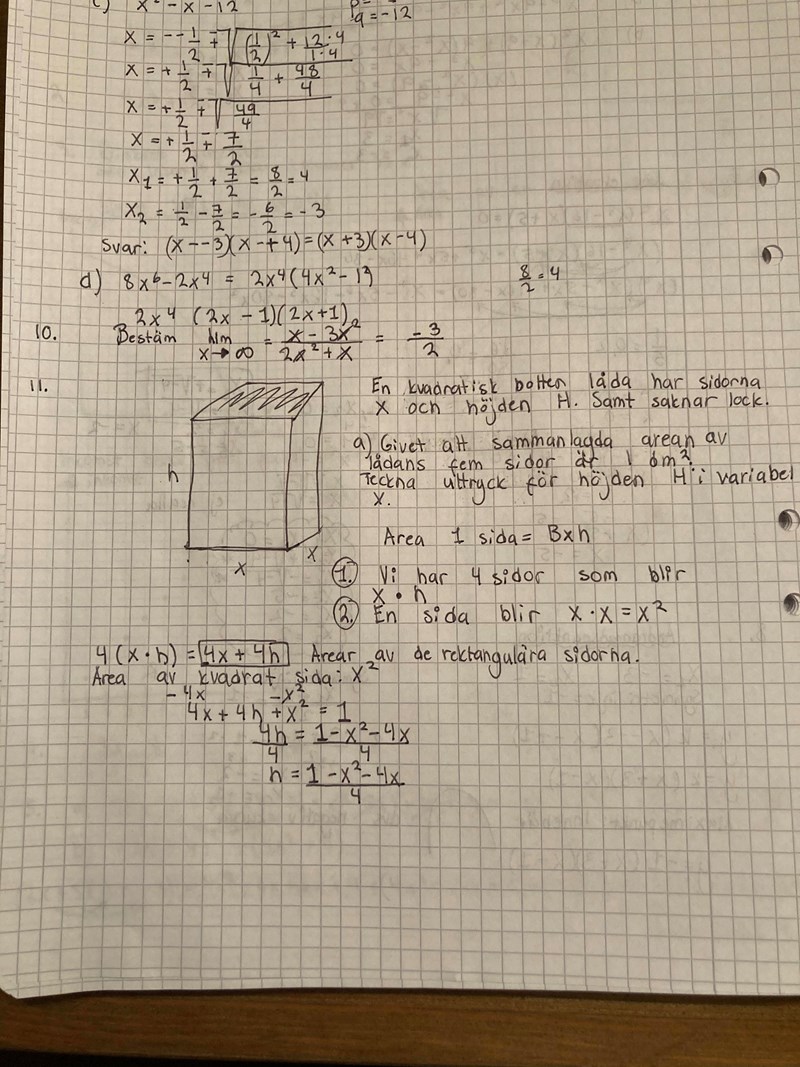 c) x² - x - 12
q = -12
x = - -1/2 ∓ √((1/2)² + 12·4/1·4)
x = + 1/2 ∓ √(1/4 + 48/4)
x = + 1/2 ∓ √(49/4)
x = + 1/2 ∓ 7/2
x₁ = + 1/2 + 7/2 = 8/2 = 4
x₂ = 1/2 - 7/2 = - 6/2 = - 3
Svar: (x - -3)(x - +4) = (x + 3)(x - 4)
d) 8x⁶ - 2x⁴ = 2x⁴(4x² - 1²)
8/2 = 4
2x⁴ (2x - 1)(2x + 1)
10. Bestäm lim x→∞ = x - 3x²/2x² + x = -3/2
11.
En kvadratisk botten låda har sidorna
x och höjden H. Samt saknar lock.
a) Givet att sammanlagda arean av
lådans fem sidor är 1 öm².
Teckna uttryck för höjden H i variabel
x.
h
x
x
Area 1 sida = Bxh
1. Vi har 4 sidor som blir
x · h
2. En sida blir x · x = x²
4(x · h) = 4x + 4h Arear av de rektangulära sidorna.
Area av kvadrat sida: x²
- 4x - x²
4x + 4h + x² = 1
4h/4 = 1 - x² - 4x/4
h = 1 - x² - 4x/4